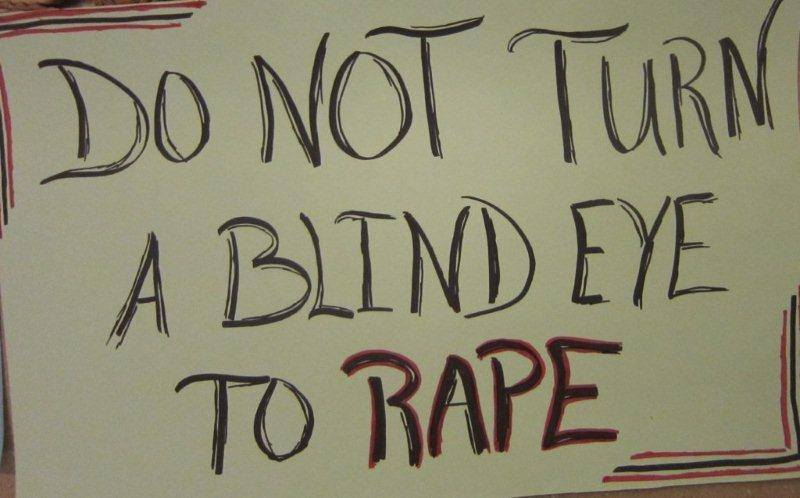 DO NOT TURN
A BLIND EYE
TO RAPE